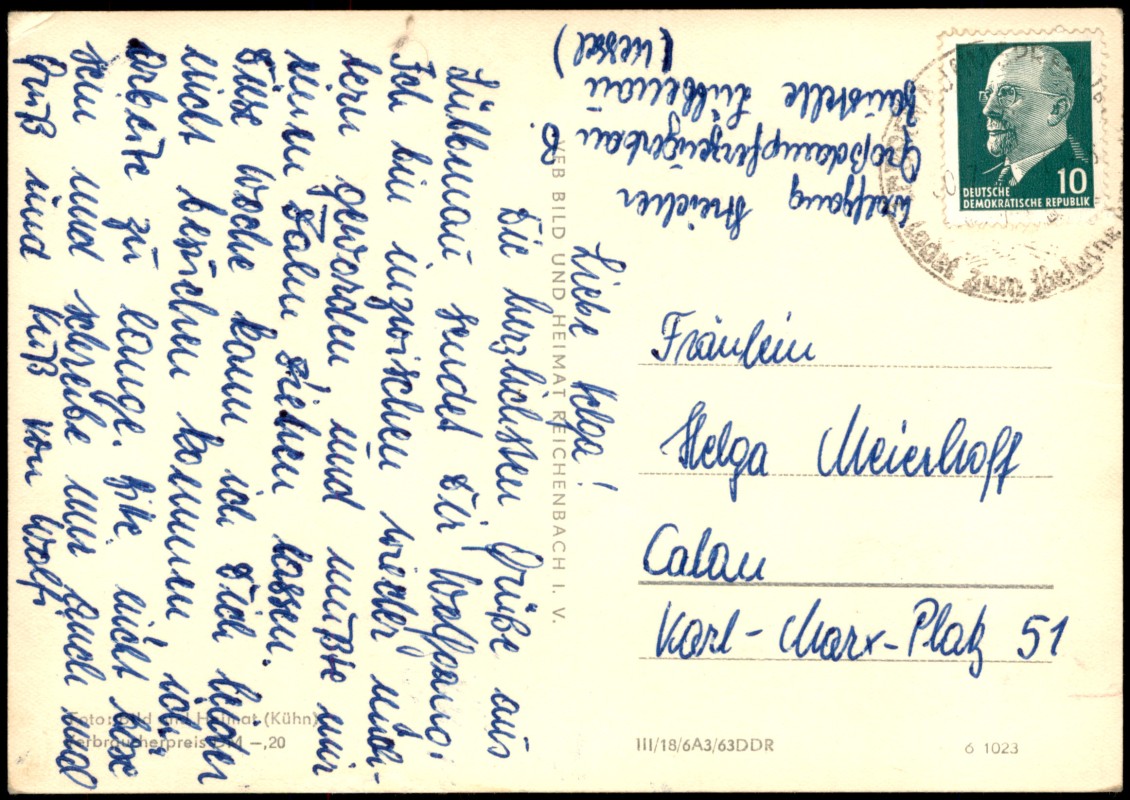 Wolfgang Streicher
Großdampferzeugerbau B.
Baustelle Lübbenau
(Kessel)
Liebe Helga!
Die herzlichsten Grüße aus
Lübbenau sendet Dir Wolfgang.
Ich bin inzwischen wieder
geworden und mußte mir
einen Zahn ziehen lassen.
Diese Woche kann ich Dich leider
nicht besuchen kommen ich
arbeite zu lange. Bitte nicht böse
sein und schreibe mir auch mal
Gruß und Kuß von Wolf.
VEB BILD UND HEIMAT REICHENBACH I. V.
Foto: Bild und Heimat (Kühn)
Verbraucherpreis DM —,20
DEUTSCHE
DEMOKRATISCHE REPUBLIK
10
ladet zum Besuche
Fräulein
Helga Meierhoff
Calau
Karl-Marx-Platz 51
III/18/6A3/63DDR
6 1023